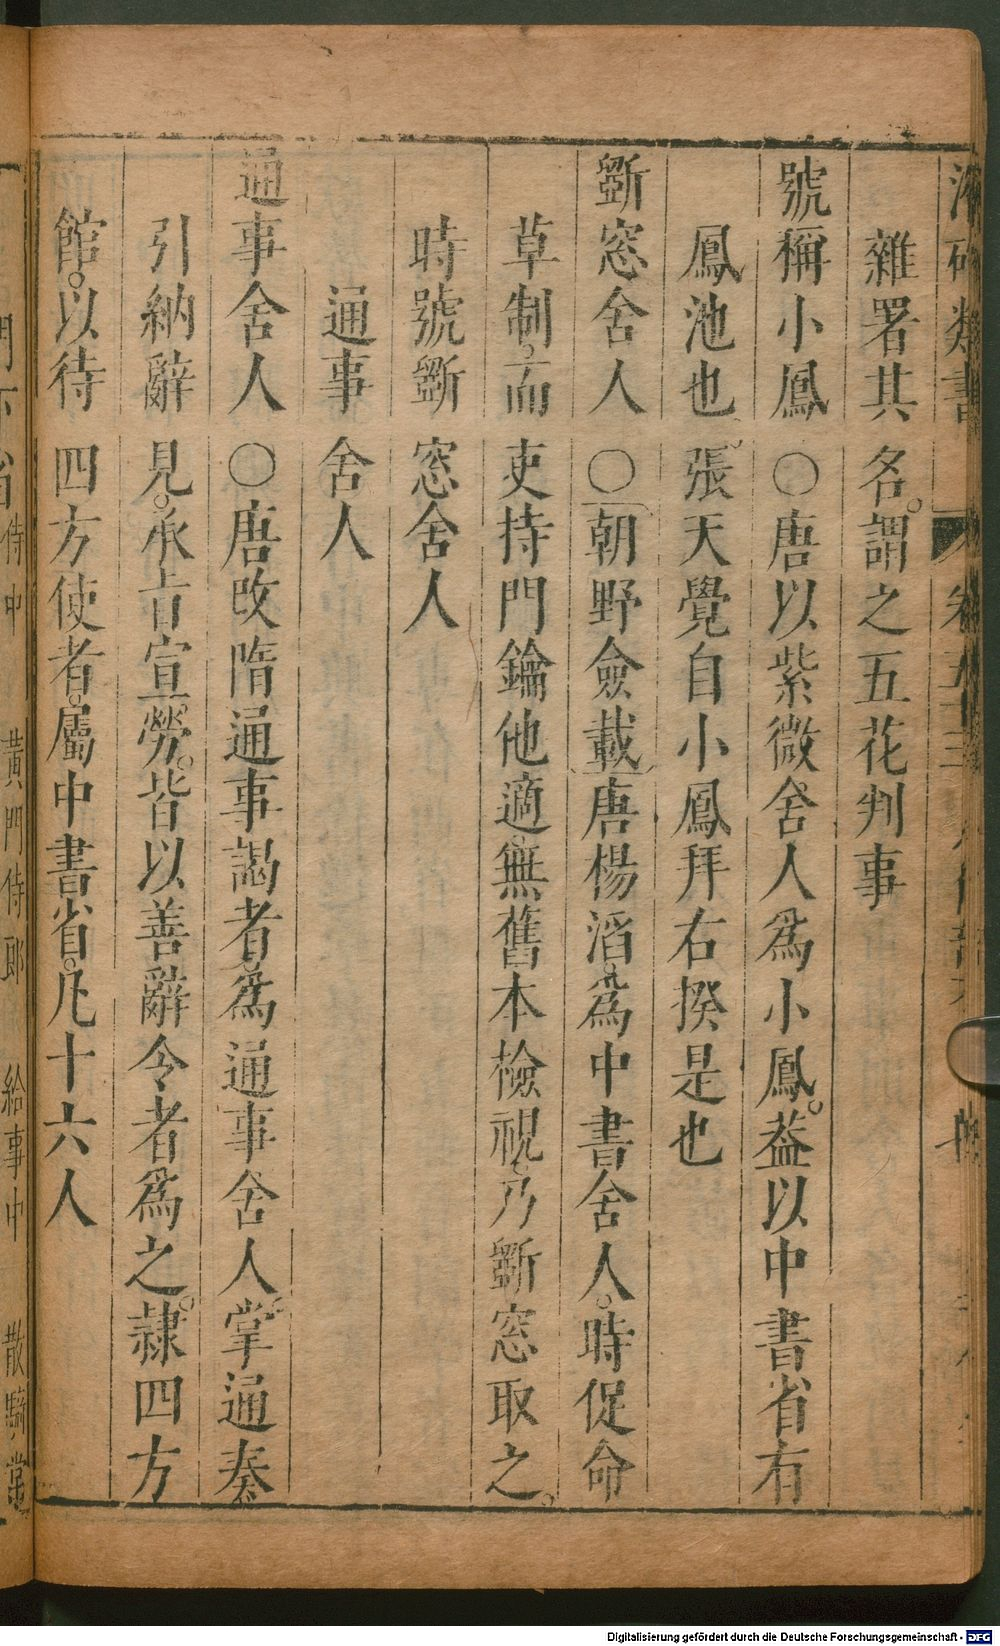 類書
雜署其名。謂之五花判事
號稱小鳳○唐以紫微舍人爲小鳳。葢以中書省有
鳳池也。張天覺自小鳳拜右揆是也
斵窓舍人○朝野僉載唐楊滔。爲中書舍人。時促命
草制。而吏持門鑰他適。無舊本檢視。乃斵窓取之。
時號斵窓舍人
通事舍人
通事舍人○唐改隋通事謁者爲通事舍人。掌通奏
引納辭見。承旨宣勞。皆以善辭令者爲之。隷四方
館。以待四方使者。屬中書省。凡十六人
侍中 黃門侍郎 給事中 散騎常
Digitalisierung gefördert durch die Deutsche Forschungsgemeinschaft - DFG